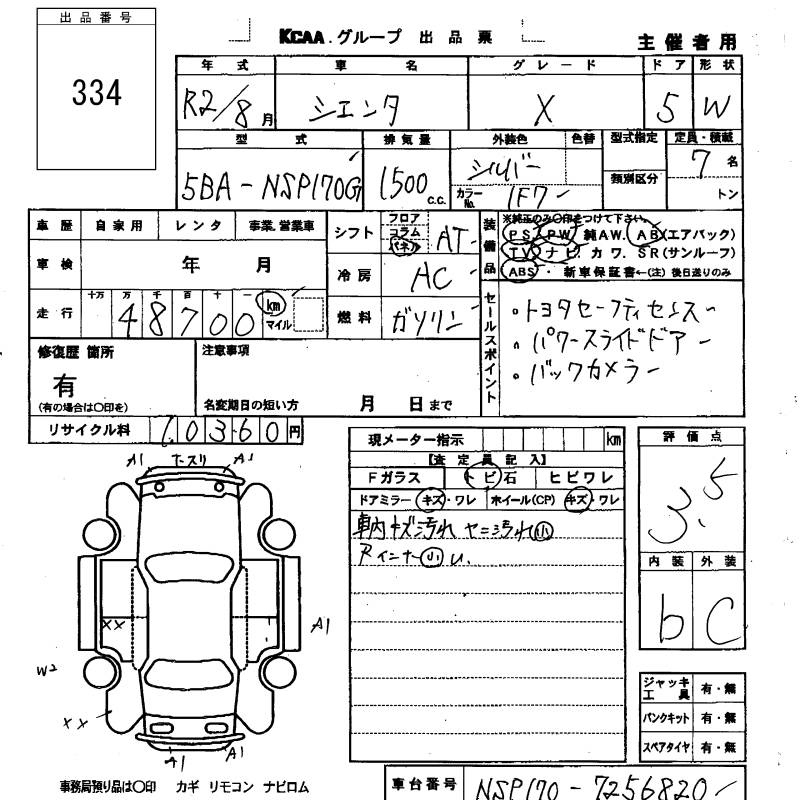 出品番号
334
KCAA.グループ 出品票
主催者用
年式 車名 グレード ドア 形状
R2/8月 シエンタ X 5 W
型式 排気量 外装色 色替 型式指定 定員・積載
5BA-NSP170G 1500 c.c. シルバー 7名
カラーNo. 1F7 類別区分 トン
車歴 自家用 レンタ 事業.営業車
シフト フロア コラム パネル AT
装備品
※純正のみ○印をつけて下さい。
PS. PW 純AW. AB(エアバック)
TV ナビ. カワ. SR(サンルーフ)
ABS・ 新車保証書←(注)後日送りのみ
車検 年 月
冷房 AC
走行 十万 万 千 百 十 一
48700 km マイル
燃料 ガソリン
セールスポイント
・トヨタセーフティセンス
・パワースライドドア
・バックカメラ
修復歴 箇所
有
(有の場合は○印を)
注意事項
名変期日の短い方 月 日まで
リサイクル料 10360円
現メーター指示 km
【査定員記入】
Fガラス トビ石 ヒビワレ
ドアミラー キズ・ワレ ホイール(CP) キズ・ワレ
車内キズ汚れ ヤニ汚れ小
Rインナー小
評価点
3.5
内装 外装
b C
A1 A1
XX
A1
W2
XX
A1 A1
ジャッキ工具 有・無
パンクキット 有・無
スペアタイヤ 有・無
事務局預り品は○印 カギ リモコン ナビロム
車台番号 NSP170-7256820